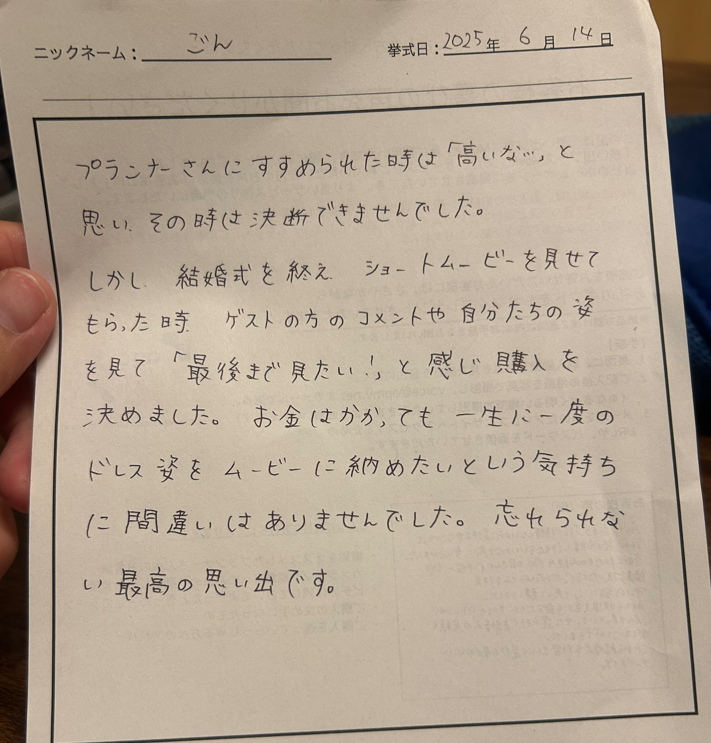 ニックネーム：ごん 挙式日：2025年 6月 14日
プランナーさんにすすめられた時は「高いな…」と
思い、その時は決断できませんでした。
しかし、結婚式を終え、ショートムービーを見せて
もらった時、ゲストの方のコメントや自分たちの姿
を見て「最後まで見たい！」と感じ購入を
決めました。お金はかかっても一生に一度の
ドレス姿をムービーに納めたいという気持ち
に間違いはありませんでした。忘れられな
い最高の思い出です。